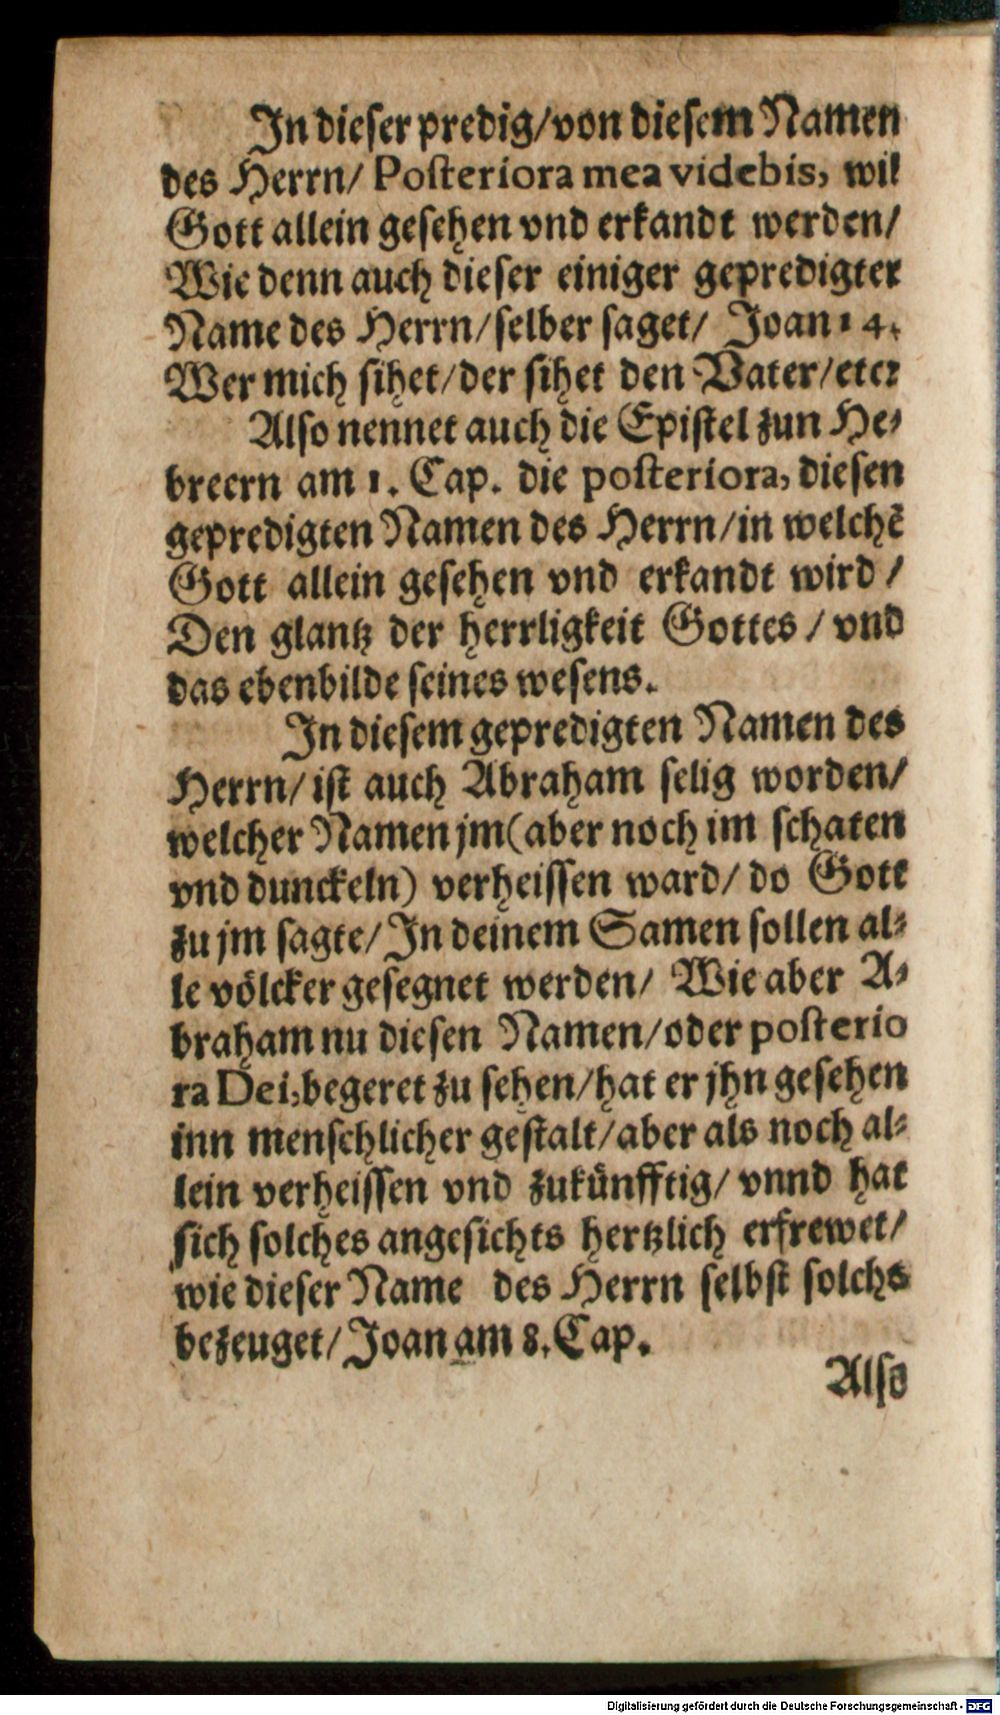 In dieser predig/von diesem Namen
des Herrn/ Posteriora mea videbis, wil
Gott allein gesehen vnd erkandt werden/
Wie denn auch dieser einiger gepredigter
Name des Herrn/selber saget/ Joan 14.
Wer mich sihet/der sihet den Vater/etc:
Also nennet auch die Epistel zun He-
breern am 1. Cap. die posteriora, diesen
gepredigten Namen des Herrn/in welchē
Gott allein gesehen vnd erkandt wird/
Den glantz der herrligkeit Gottes/vnd
das ebenbilde seines wesens.
In diesem gepredigten Namen des
Herrn/ist auch Abraham selig worden/
welcher Namen jm(aber noch im schaten
vnd dunckeln) verheissen ward/do Gott
zu jm sagte/In deinem Samen sollen al-
le völcker gesegnet werden/ Wie aber A-
braham nu diesen Namen/oder posterio
ra Dei,begeret zu sehen/hat er jhn gesehen
inn menschlicher gestalt/aber als noch al-
lein verheissen vnd zukünfftig/vnnd hat
sich solches angesichts hertzlich erfrewet/
wie dieser Name des Herrn selbst solchs
bezeuget/Joan am 8. Cap.
Also
Digitalisierung gefördert durch die Deutsche Forschungsgemeinschaft - DFG